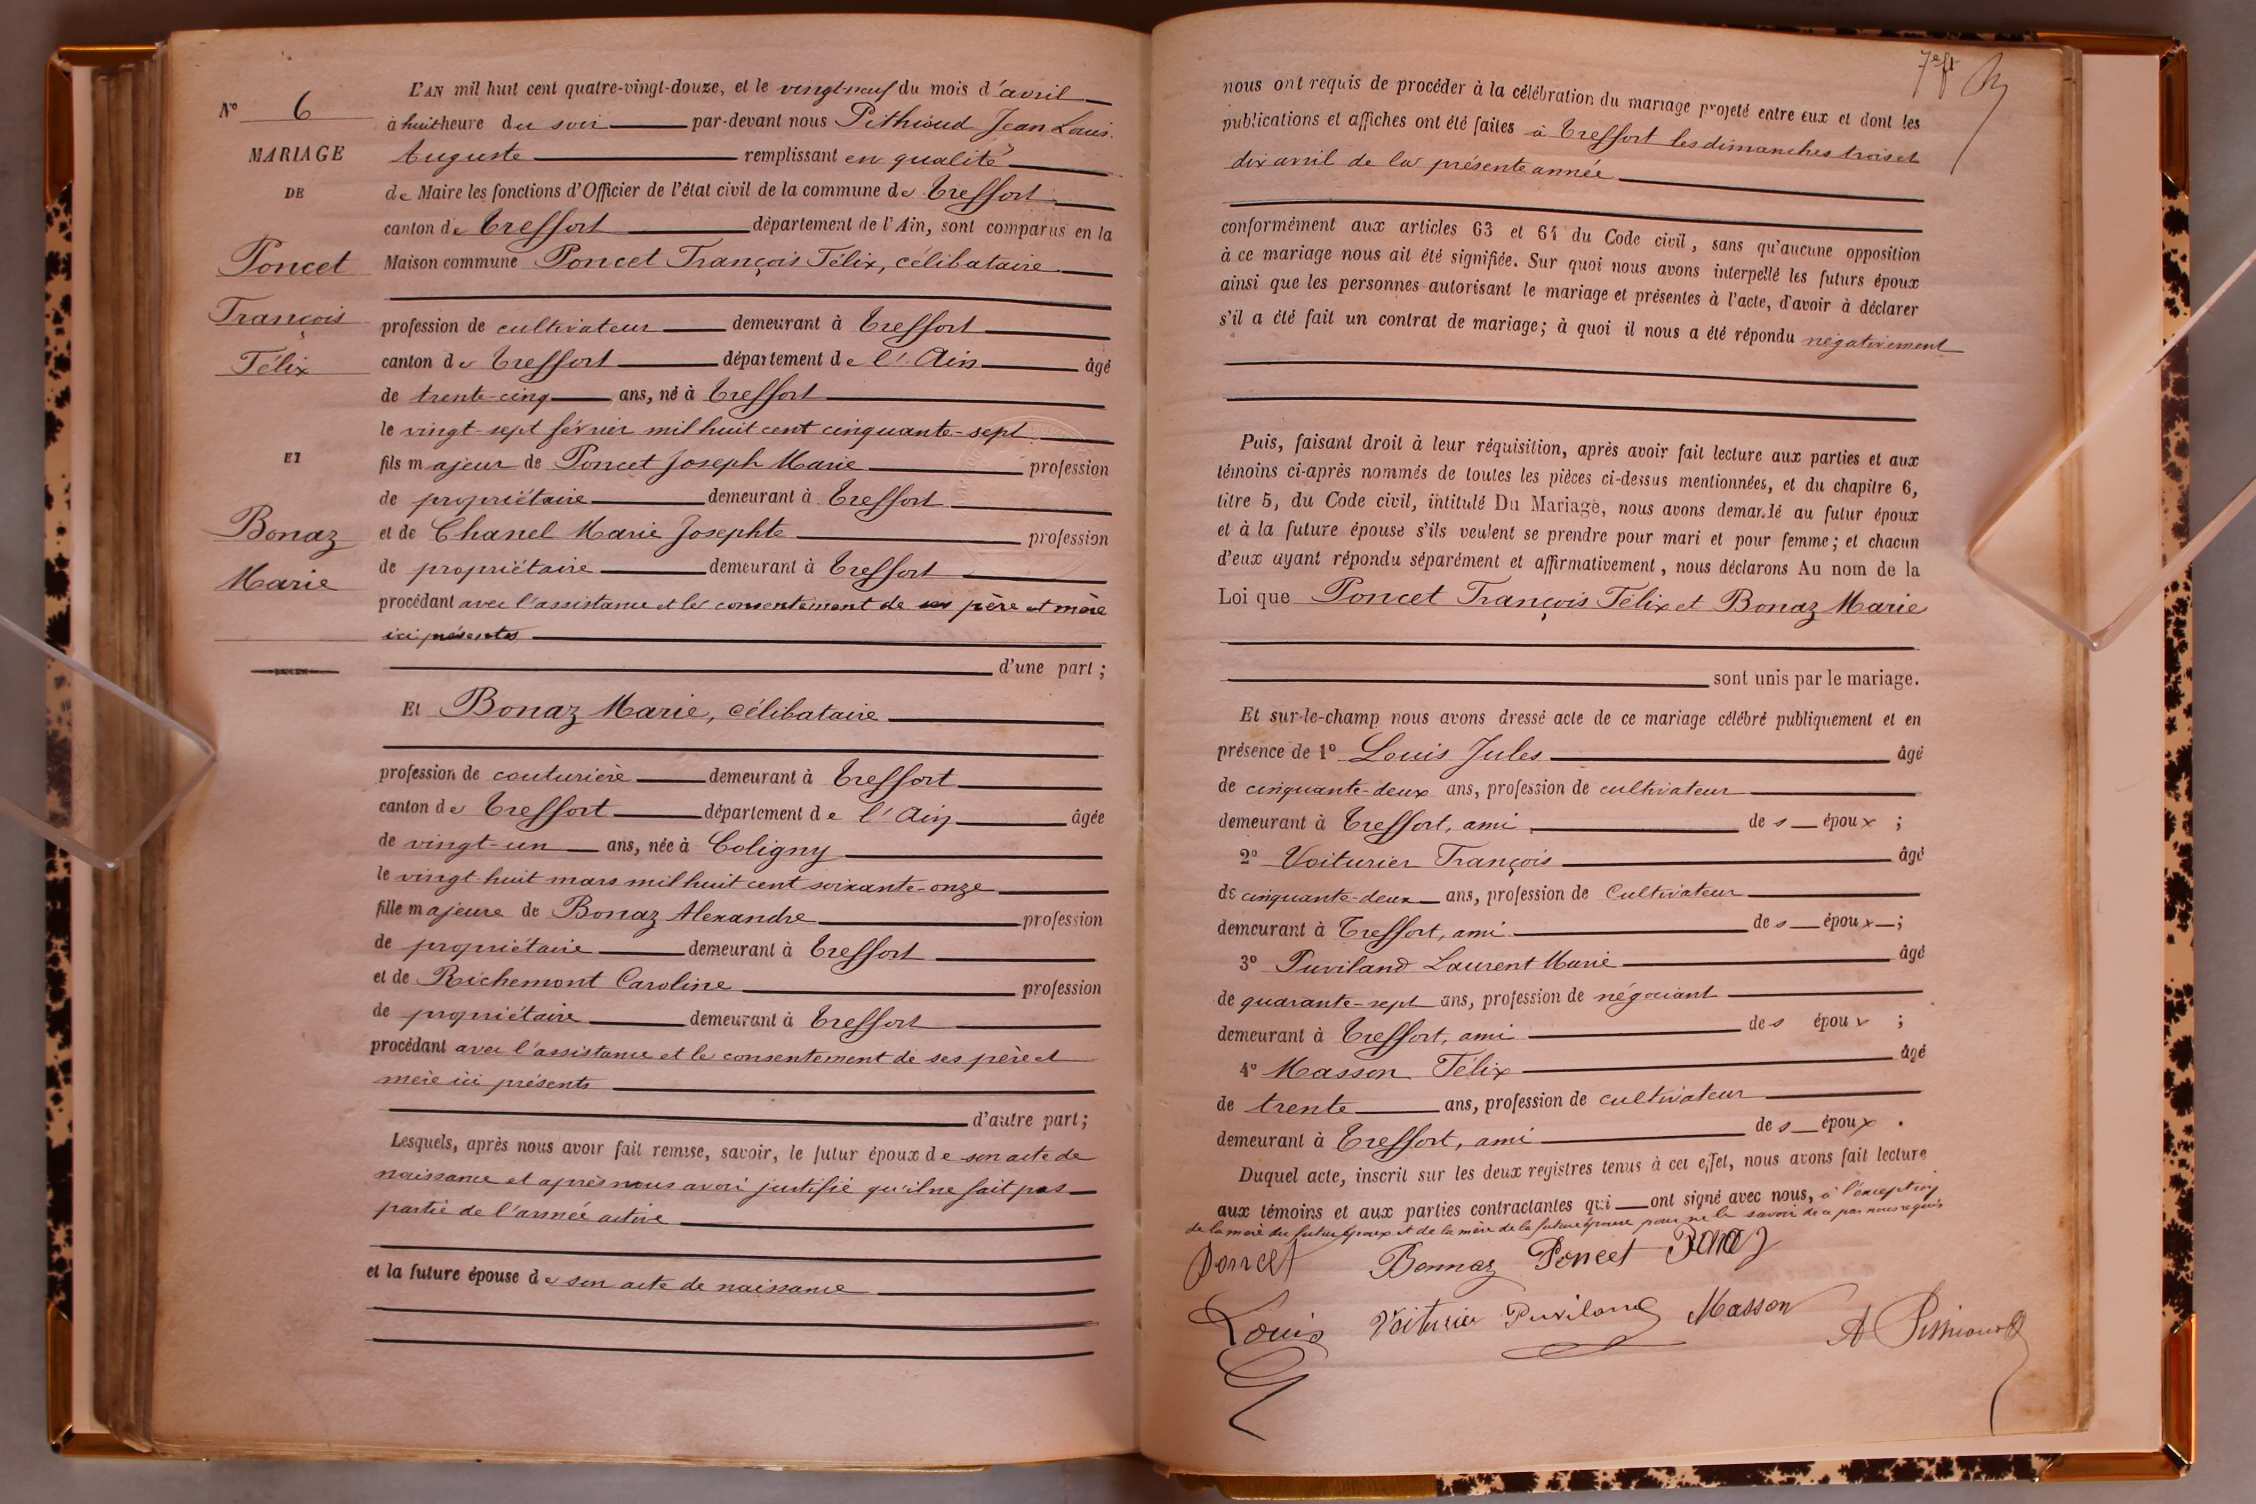 L'AN mil huit cent quatre-vingt-douze, et le vingt-neuf du mois d'avril
N° 6
à huit heure du soir par-devant nous Pithioud Jean Louis
MARIAGE
Auguste remplissant en qualité
DE
de Maire les fonctions d'Officier de l'état civil de la commune de Treffort
canton de Treffort département de l'Ain, sont comparus en la
Poncet
Maison commune Poncet François Félix, célibataire
François
profession de cultivateur demeurant à Treffort
Félix
canton de Treffort département de l'Ain âgé
de trente-cinq ans, né à Treffort
le vingt-sept février mil huit cent cinquante-sept
ET
fils majeur de Poncet Joseph Marie profession
de propriétaire demeurant à Treffort
Bonaz
et de Chanel Marie Josephte profession
Marie
de propriétaire demeurant à Treffort
procédant avec l'assistance et le consentement de ses père et mère
ici présents
d'une part ;
Et Bonaz Marie, célibataire
profession de couturière demeurant à Treffort
canton de Treffort département de l'Ain âgée
de vingt-un ans, née à Coligny
le vingt-huit mars mil huit cent soixante-onze
fille majeure de Bonaz Alexandre profession
de propriétaire demeurant à Treffort
et de Richemont Caroline profession
de propriétaire demeurant à Treffort
procédant avec l'assistance et le consentement de ses père et
mère ici présents
d'autre part ;
Lesquels, après nous avoir fait remise, savoir, le futur époux de son acte de
naissance et après nous avoir justifié qu'il ne fait pas
partie de l'armée active
et la future épouse de son acte de naissance
7e ft
nous ont requis de procéder à la célébration du mariage projeté entre eux et dont les
publications et affiches ont été faites à Treffort les dimanches trois et
dix avril de la présente année
conformément aux articles 63 et 64 du Code civil, sans qu'aucune opposition
à ce mariage nous ait été signifiée. Sur quoi nous avons interpellé les futurs époux
ainsi que les personnes autorisant le mariage et présentes à l'acte, d'avoir à déclarer
s'il a été fait un contrat de mariage ; à quoi il nous a été répondu négativement
Puis, faisant droit à leur réquisition, après avoir fait lecture aux parties et aux
témoins ci-après nommés de toutes les pièces ci-dessus mentionnées, et du chapitre 6,
titre 5, du Code civil, intitulé Du Mariage, nous avons demandé au futur époux
et à la future épouse s'ils veulent se prendre pour mari et pour femme ; et chacun
d'eux ayant répondu séparément et affirmativement, nous déclarons Au nom de la
Loi que Poncet François Félix et Bonaz Marie
sont unis par le mariage.
Et sur-le-champ nous avons dressé acte de ce mariage célébré publiquement et en
présence de 1° Louis Jules âgé
de cinquante-deux ans, profession de cultivateur
demeurant à Treffort, ami des époux ;
2° Voiturier François âgé
de cinquante-deux ans, profession de Cultivateur
demeurant à Treffort, ami des époux ;
3° Puviland Laurent Marie âgé
de quarante-sept ans, profession de négociant
demeurant à Treffort, ami des époux ;
4° Masson Félix âgé
de trente ans, profession de cultivateur
demeurant à Treffort, ami des époux .
Duquel acte, inscrit sur les deux registres tenus à cet effet, nous avons fait lecture
aux témoins et aux parties contractantes qui ont signé avec nous, à l'exception
de la mère du futur époux et de la mère de la future épouse pour ne le savoir de ce par nous requis
Poncet Bonnaz Poncet Bonaz
Louis Voiturier Puviland Masson A Pithioud